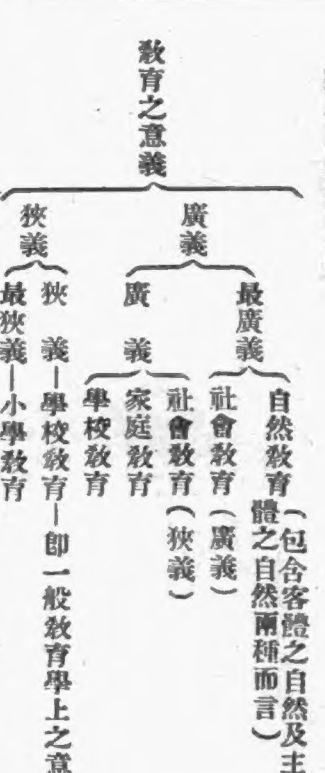 教育之意義
廣義
最廣義
自然教育(包含客體之自然及主
體之自然兩種而言)
社會教育(廣義)
廣義
社會教育(狹義)
家庭教育
學校教育
狹義
狹義—學校教育—即一般教育學上之意
最狹義—小學教育